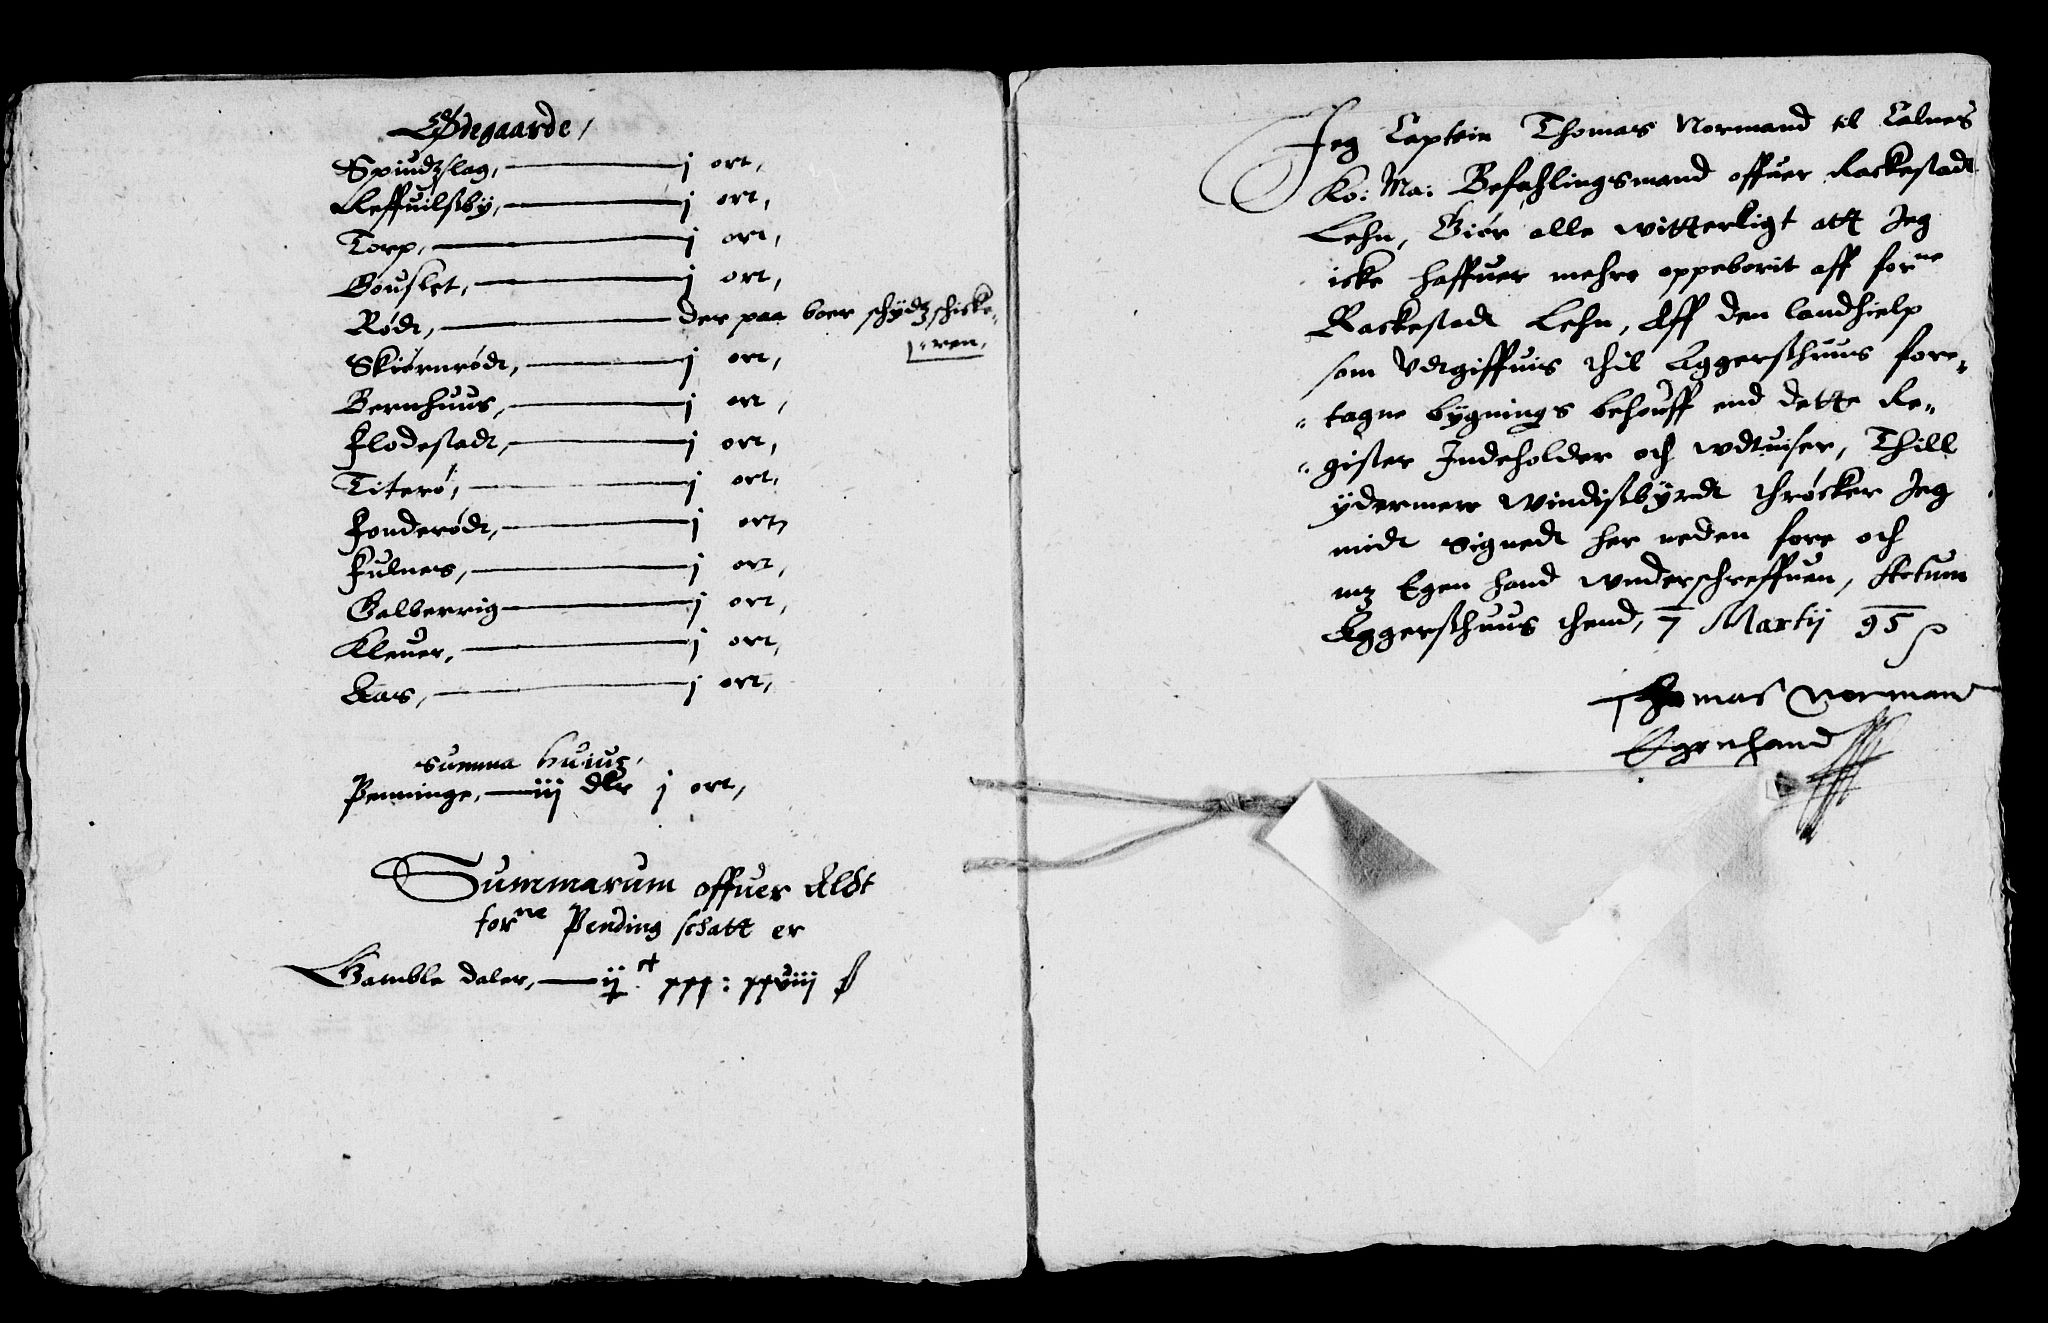 Ødegaarde,
Spiudzslag, j ort,
Reffuilsby, j ort,
Torp, j ort,
Gouslet, j ort,
Rødt, der paa boer schydz schicke-
-ren,
Skiørnrødt, j ort,
Bernhuus, j ort,
Flodestadt, j ort,
Titerø, j ort,
Fonderødt, j ort,
Fulnes, j ort,
Galberrig j ort,
Kleuer, j ort,
Aas, j ort,
Summa huius,
Penninge, iij dlr j ort,
Summarum offuer Aldt
forne Pending schatt er
Gamble daler, ij ct xxx: xxviij ß
Jeg Captein Thomas Normand til Calnes
Ko: Ma: Befahlingsmand offuer Rackestadt
Lehn, Giør alle witterligt att Jeg
icke haffuer mehre oppeborit aff forne
Rackestadt Lehn, Aff den landhielp
som Vdtgiffuis thil Aggershuus fore-
-tagne bygnings behouff end dette Re-
-gister Indeholder och wdtuiser, Thill
ydermere windisbyrdt throcker Jeg
midt Signedt her neden fore och
mz Egen hand wnderschreffuen, Actum
Aggershuus thend, 7 Martij 95
Thomas Norman
Egenhand